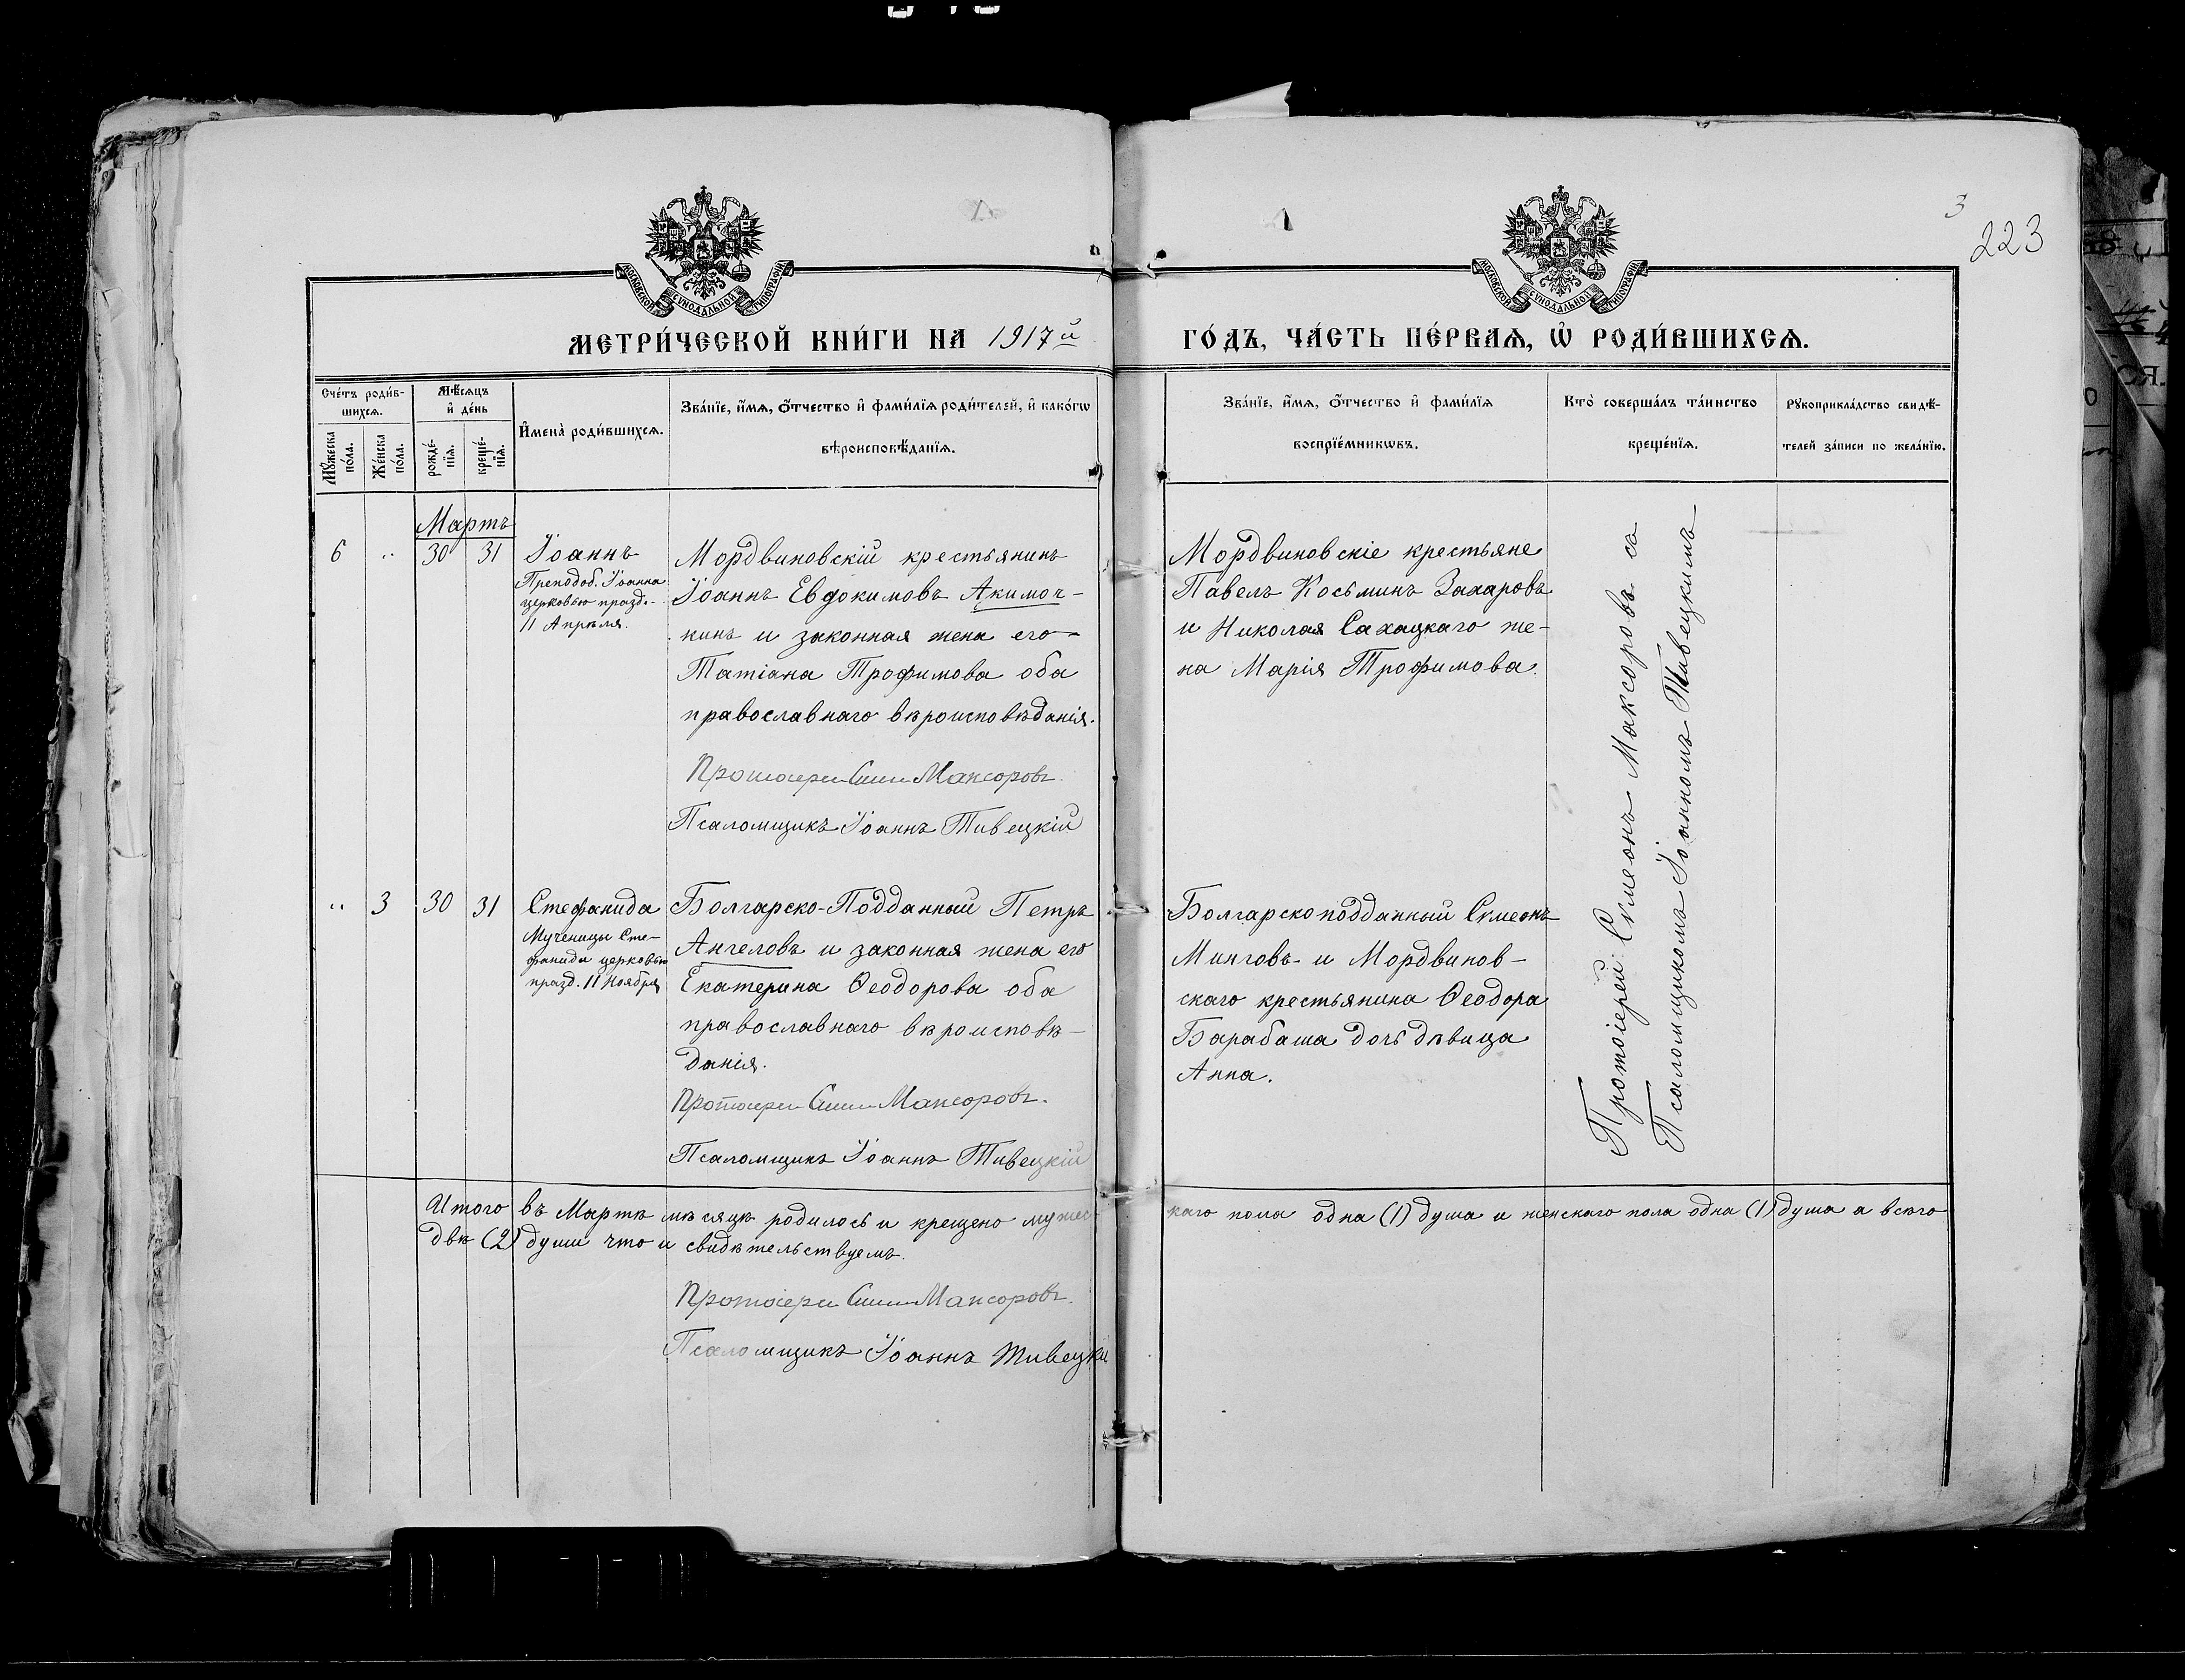 3
223
МОСКОВСКОЙ СѴНОДАЛЬНОЙ ТИПОГРАФІИ
МОСКОВСКОЙ СѴНОДАЛЬНОЙ ТИПОГРАФІИ
МЕТРИ́ЧЕСКОЙ КНИ́ГИ НА 1917й
ГО́ДЪ, ЧА́СТЬ ПЕ́РВАѦ, Ѡ҆ РОДИ́ВШИХСѦ.
Сче́тъ роди́в-
шихсѧ.
Мѣ́сѧцъ
и҆ де́нь
Мꙋ́жеска
по́ла.
Же́нска
по́ла.
рожде́-
нїѧ.
креще́-
нїѧ.
И҆мена̀ роди́вшихсѧ.
Зва́нїе, и҆́мѧ, о҆́тчество и҆ фами́лїѧ роди́телей, и҆ како́гѡ
вѣроисповѣ́данїѧ.
Зва́нїе, и҆́мѧ, о҆́тчество и҆ фами́лїѧ
воспрїе́мникѡвъ.
Кто̀ соверша́лъ та́инство
креще́нїѧ.
Рꙋкоприкла́дство свидѣ́-
телей за́писи по жела́нїю.
Мартъ
6 " 30 31
Іоаннъ
Преподоб. Іоанна
церковью празд.
11 Апрѣля.
Мордвиновскій крестьянинъ
Іоаннъ Евдокимовъ Акимоч-
кинъ и законная жена его
Татіана Трофимова оба
православнаго вѣроисповѣданія.
Протоіерей Симеонъ Максоровъ.
Псаломщикъ Іоаннъ Тивецкій
Мордвиновскіе крестьяне
Павелъ Косьминъ Захаровъ
и Николая Сахацкаго же-
на Марія Трофимова.
Протоіерей Сѵмеонъ Максоровъ съ
Псаломщикомъ Іоанномъ Тивецкимъ
" 3 30 31
Стефанида
Мученицы Сте-
фаниды церковью
празд. 11 Ноября
Болгарско-Подданный Петръ
Ангеловъ и законная жена его
Екатерина Ѳеодорова оба
православнаго вѣроисповѣ-
данія.
Протоіерей Симеонъ Максоровъ.
Псаломщикъ Іоаннъ Тивецкій
Болгарскоподданный Сѵмеонъ
Минговъ и Мордвинов-
скаго крестьянина Ѳеодора
Барабаша дочь дѣвица
Анна.
Итого въ Мартѣ мѣсяцѣ родилось и крещено мужес-
каго пола одна (1) душа и женскаго пола одна (1) душа а всего
двѣ (2) души что и свидѣтельствуемъ.
Протоіерей Симеонъ Максоровъ.
Псаломщикъ Іоаннъ Тивецкій